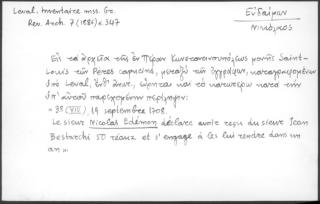 Laval. Inventaire mss. Gr.
Rev. Arch. 7 (1886) σ. 347
Εὐδαίμων
Νικόλαος
Εἰς τὰ ἀρχεῖα τῆς ἐν Πέραν Κωνσταντινουπόλεως μονῆς Saint-
Louis τῶν Pères capucins, μεταξὺ τῶν ἐγγράφων, καταγραφομένων
ὑπὸ Laval, ἔνθ' ἄνωτ., εὕρηται καὶ τὸ κατωτέρω κατὰ τὴν
ὑπ' αὐτοῦ παρεχομένην περίληψιν:
« 38 (VII), 19 septembre 1708.
Le sieur Nicolas Edémon déclare avoir reçu du sieur Jean
Bestarchi 50 réaux et s'engage à les lui rendre dans un
an »